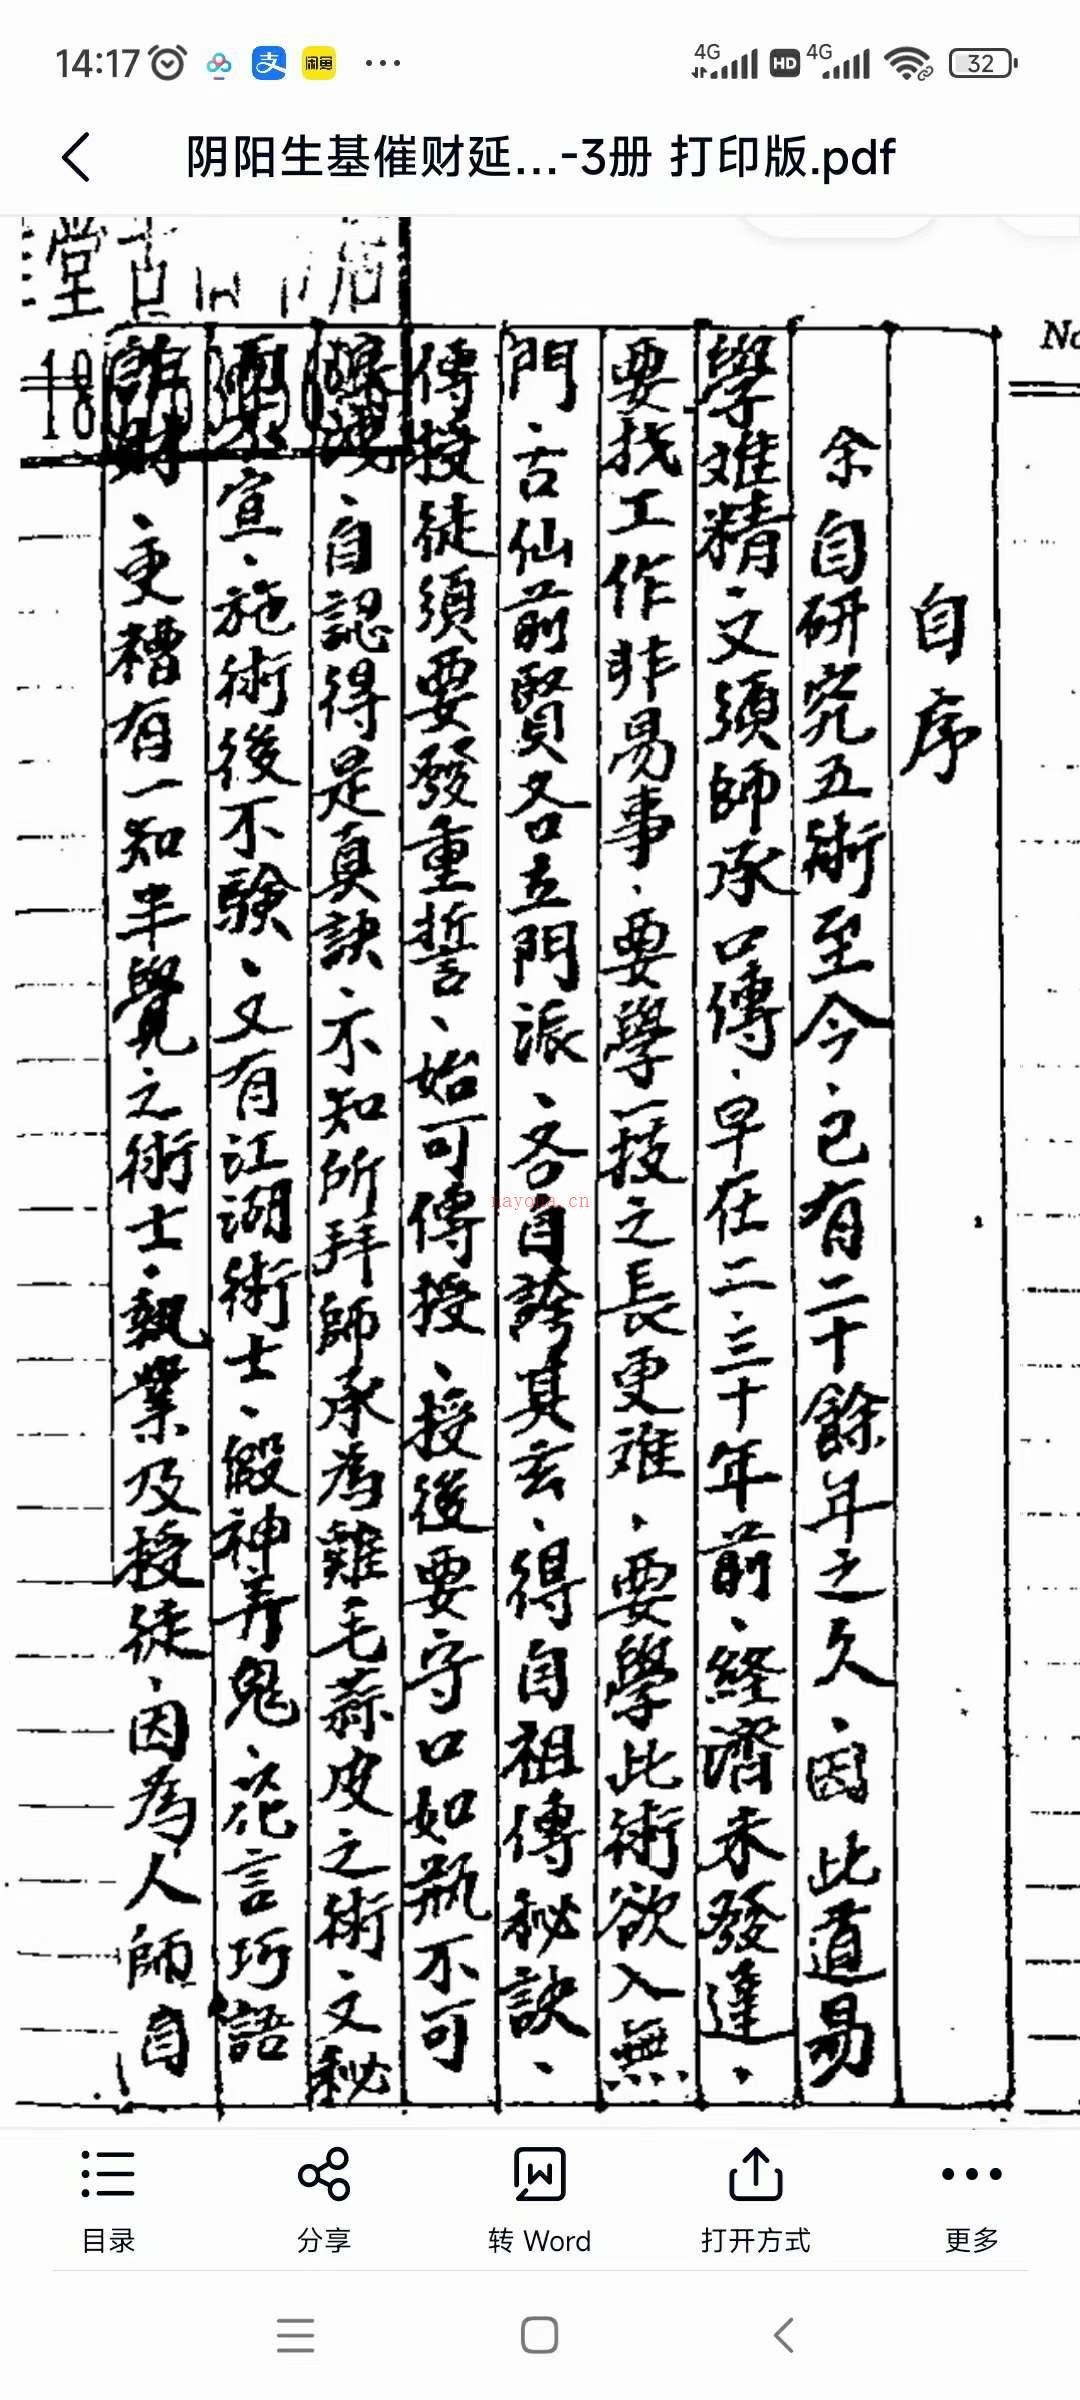 14:17
闲鱼
4G
HD
4G
32
阴阳生基催财延...-3册 打印版.pdf
堂
No
自序
余自研究五術至今、已有二十餘年之久、因此道易
學难精、文須師承口傳、早在二、三十年前、経濟未發達、
要找工作非易事、要學一技之長更难、要學此術欲入無
門、古仙前賢各立門派、各自誇其玄、得自祖傳秘訣、
傳授徒須要發重誓、始可傳授、授後要守口如瓶不可
、自認得是真訣、不知所拜師承為雞毛蒜皮之術、文秘
而不宣、施術後不験、又有江湖術士、假神弄鬼、花言巧語
財、更糟有一知半覺之術士、執業及授徒、因為人師自
nayona.cn
目录
分享
转 Word
打开方式
更多